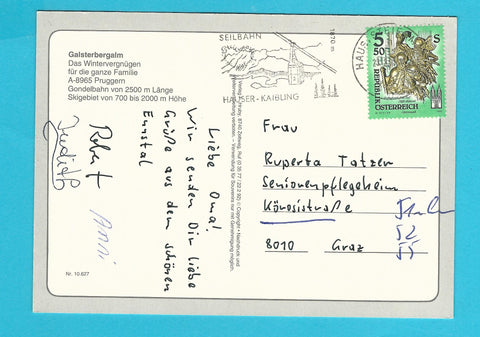 Galsterbergalm
Das Wintervergnügen
für die ganze Familie
A-8965 Pruggern
Gondelbahn von 2500 m Länge
Skigebiet von 700 bis 2000 m Höhe
Liebe Oma!
Wir senden Dir liebe
Grüße aus dem schönen
Ennstal
Robert
Anni
Judith
Nr. 10.627
SEILBAHN
1870 m
HAUSER-KAIBLING
HAUS
5 50 S
REPUBLIK
ÖSTERREICH
Frau
Ruperta Tatzer
Seniorenpflegeheim
Körösistraße
52
55
8010 Graz